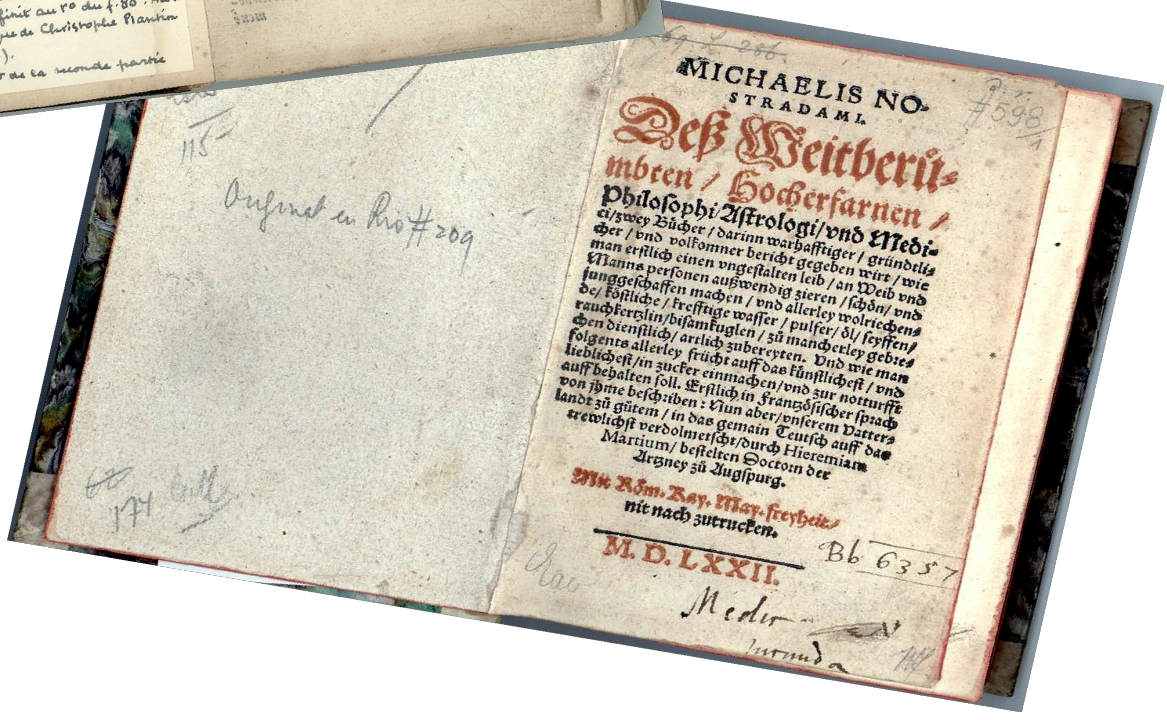 finit au ro du f. 80.
que de Christophe Plantin
).
de la seconde partie
115
Original en Rio # 209
174
MICHAELIS NO-
STRADAMI.
Deß Weitberů-
mbten / Hocherfarnen /
Philosophi / Astrologi / vnd Medi-
ci / zwey Bücher / darinn warhafftiger / gründtli-
cher / vnd volkomner bericht gegeben wirt / wie
man erstlich einen vngestalten leib / an Weib vnd
Manns personen außwendig zieren / schön / vnd
junggeschaffen machen / vnd allerley wolriechen-
de / köstliche / krefftige wasser / pulfer / öl / seyffen /
rauchkertzlin / bisamkuglen / zů mancherley gebre-
chen dienstlich / artlich zubereyten. Vnd wie man
folgents allerley frücht auff das künstlichest / vnd
lieblichest / in zucker einmachen / vnd zur notturfft
auff behalten soll. Erstlich in Frantzösischer sprach
von jhme beschriben : Nun aber / vnserem Vatter-
landt zů gůtem / in das gemain Teutsch auff das
trewlichst verdolmetscht / durch Hieremiam
Martium / bestelten Doctorn der
Artzney zů Augspurg.
Mit Röm. Kay. May. freyheit /
nit nach zutrucken.
M. D. LXXII.
Bb 6357
#598